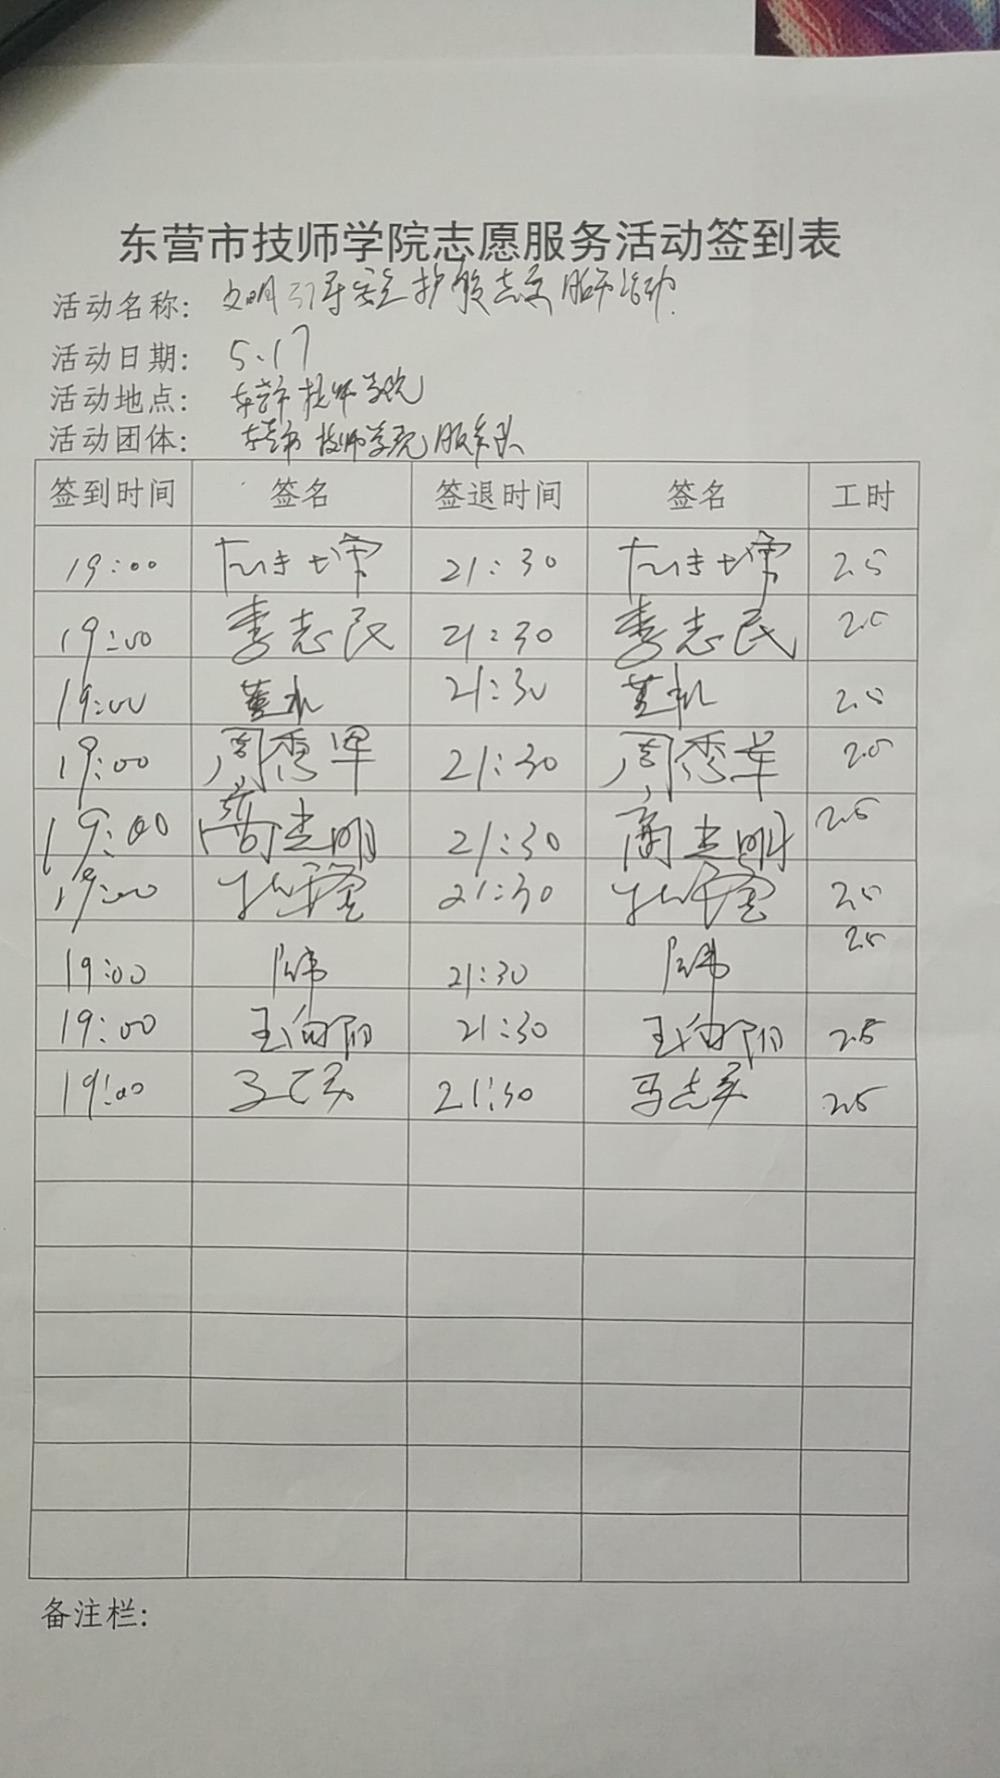 东营市技师学院志愿服务活动签到表
活动名称: 文明引导安全护航志愿服务活动
活动日期: 5.17
活动地点: 东营市技师学院
活动团体: 东营市技师学院服务队
签到时间 签名 签退时间 签名 工时
19:00 21:30 2.5
19:00 李志民 21:30 李志民 2.5
19:00 21:30 2.5
19:00 周秀军 21:30 周秀军 2.5
19:00 商志明 21:30 商志明 2.5
19:00 21:30 2.5
19:00 21:30 2.5
19:00 王向阳 21:30 王向阳 2.5
19:00 21:30 2.5
备注栏: